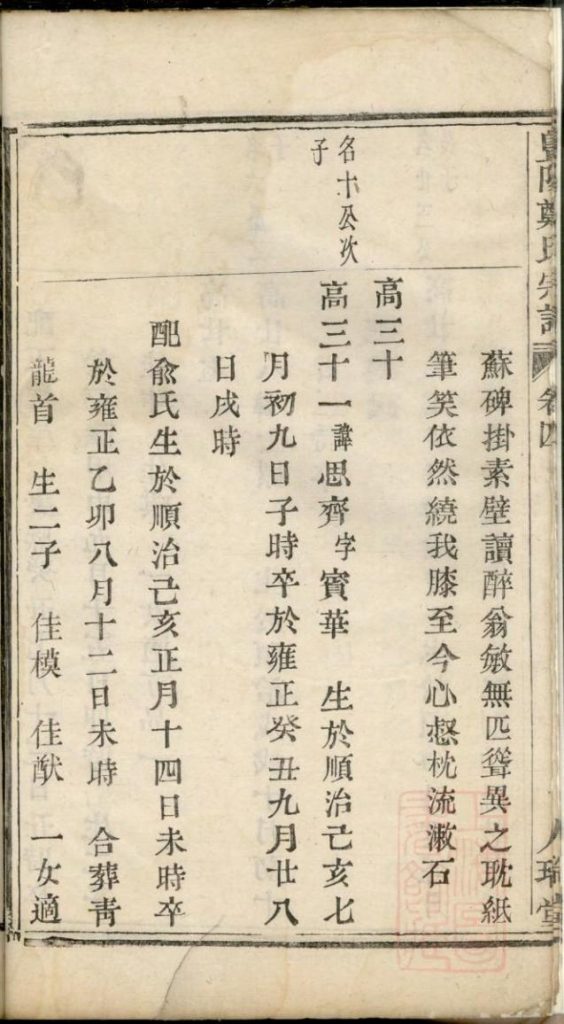 暨陽鄭氏宗譜 卷四
人瑞堂
蘇碑掛素壁讀醉翁敏無匹聳異之耽紙
筆笑依然繞我膝至今心惄枕流漱石
高三十
名卞公次
子
高三十一諱思齊字賓華 生於順治己亥七
月初九日子時卒於雍正癸丑九月廿八
日戌時
配俞氏生於順治己亥正月十四日未時卒
於雍正乙卯八月十二日未時 合葬青
龍首 生二子 佳模 佳猷 一女適